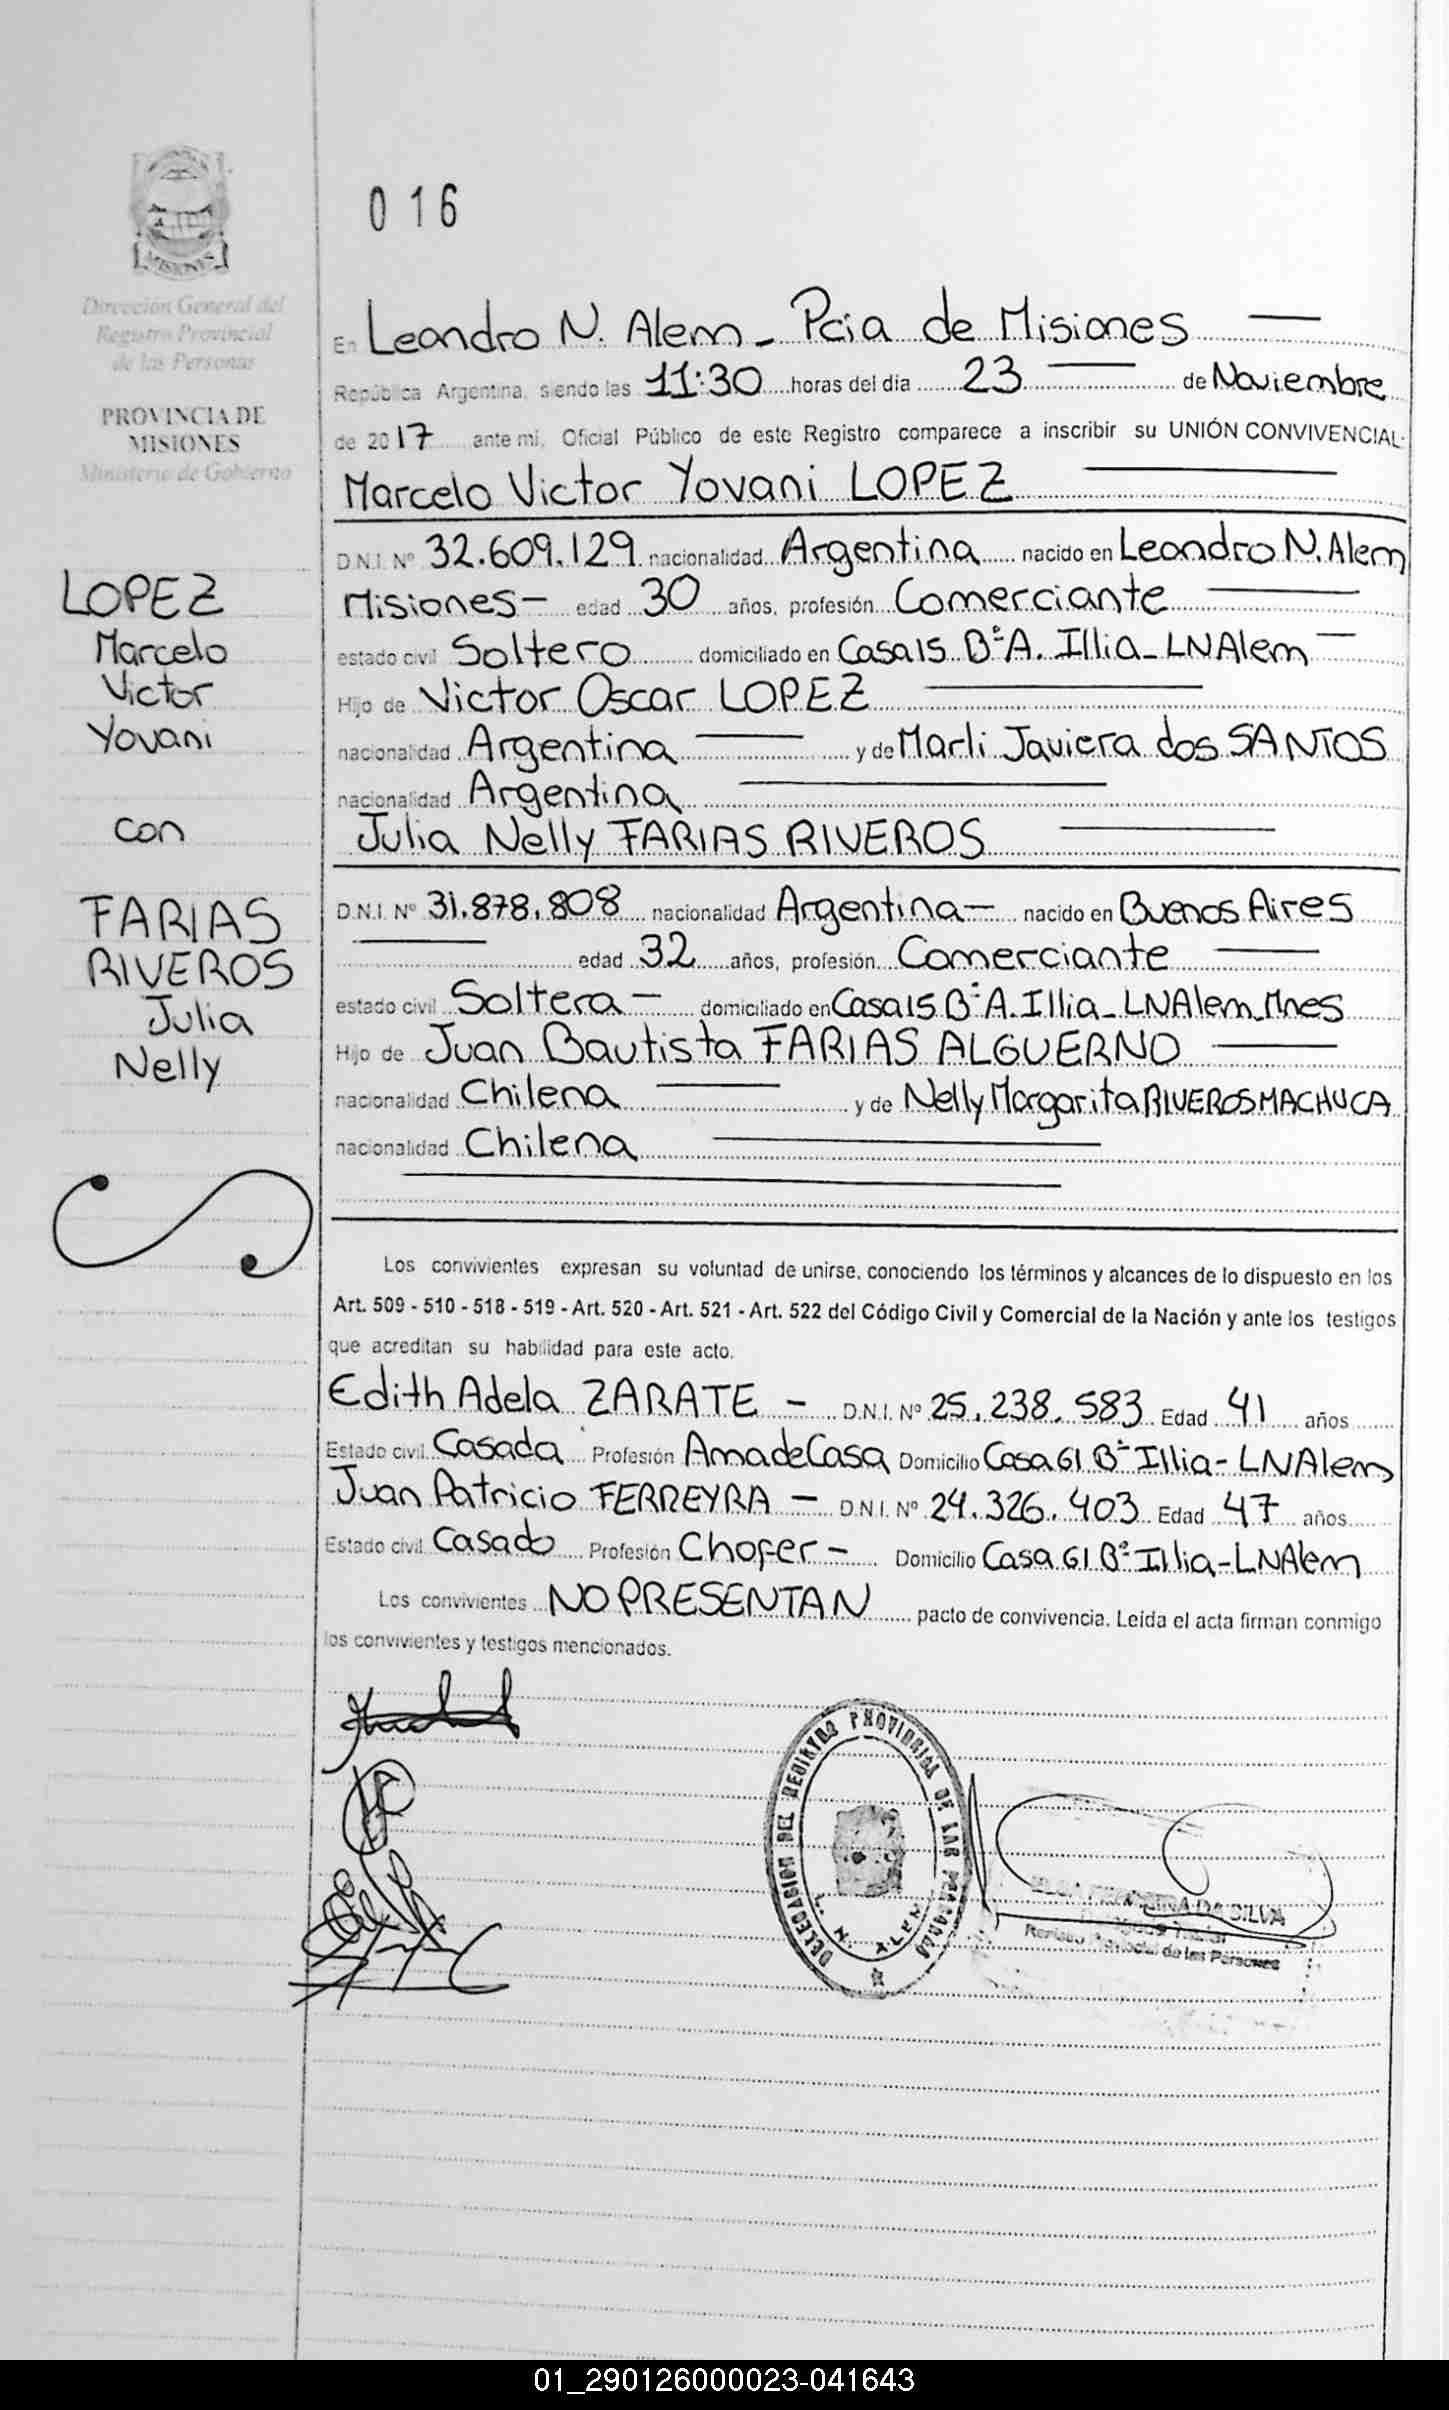 016
MISIONES
Dirección General del
Registro Provincial
de las Personas
PROVINCIA DE
MISIONES
Ministerio de Gobierno
LOPEZ
Marcelo
Victor
Yovani
con
FARIAS
RIVEROS
Julia
Nelly
En Leandro N. Alem - Pcia de Misiones
República Argentina, siendo las 11:30 horas del día 23 de Noviembre
de 2017 ante mi, Oficial Público de este Registro comparece a inscribir su UNIÓN CONVIVENCIAL:
Marcelo Victor Yovani LOPEZ
D.N.I. Nº 32.609.129 nacionalidad Argentina nacido en Leandro N. Alem
Misiones- edad 30 años, profesión Comerciante
estado civil Soltero domiciliado en Casa 15 Bº A. Illia - LNAlem -
Hijo de Victor Oscar LOPEZ
nacionalidad Argentina y de Marli Javiera dos SANTOS
nacionalidad Argentina
Julia Nelly FARIAS RIVEROS
D.N.I. Nº 31.878.808 nacionalidad Argentina - nacido en Buenos Aires
edad 32 años, profesión Comerciante
estado civil Soltera - domiciliado en Casa 15 Bº A. Illia - LNAlem - Mnes
Hijo de Juan Bautista FARIAS ALGUERNO
nacionalidad Chilena y de Nelly Margarita RIVEROS MACHUCA
nacionalidad Chilena
Los convivientes expresan su voluntad de unirse, conociendo los términos y alcances de lo dispuesto en los
Art. 509 - 510 - 518 - 519 - Art. 520 - Art. 521 - Art. 522 del Código Civil y Comercial de la Nación y ante los testigos
que acreditan su habilidad para este acto.
Edith Adela ZARATE - D.N.I. Nº 25.238.583 Edad 41 años
Estado civil Casada Profesión Ama de Casa Domicilio Casa 61 Bº Illia - LNAlem
Juan Patricio FERREYRA - D.N.I. Nº 24.326.403 Edad 47 años
Estado civil Casado Profesión Chofer - Domicilio Casa 61 Bº Illia - LNAlem
Los convivientes NO PRESENTAN pacto de convivencia. Leída el acta firman conmigo
los convivientes y testigos mencionados.
DELEGACION DEL REGISTRO PROVINCIAL DE LAS PERSONAS
L. N. ALEM
DA SILVA
Registro Provincial de las Personas
01_290126000023-041643